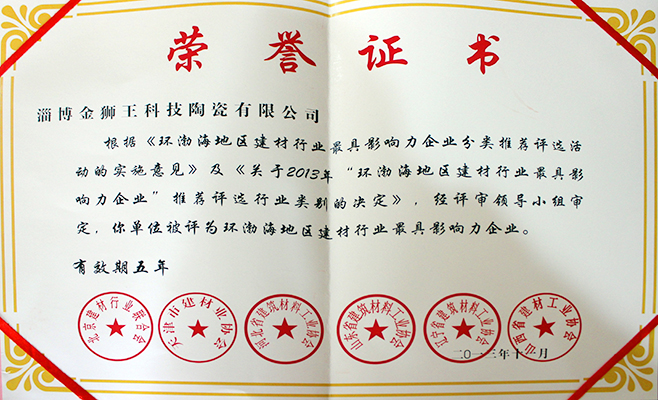 荣誉证书
淄博金狮王科技陶瓷有限公司
根据《环渤海地区建材行业最具影响力企业分类推荐评选活
动的实施意见》及《关于2013年“环渤海地区建材行业最具影
响力企业”推荐评选行业类别的决定》，经评审领导小组审
定，你单位被评为环渤海地区建材行业最具影响力企业。
有效期五年
北京建材行业联合会
天津市建材业协会
河北省建筑材料工业协会
山东省建筑材料工业协会
辽宁省建筑材料工业协会
山西省建材工业协会
二〇一三年十一月